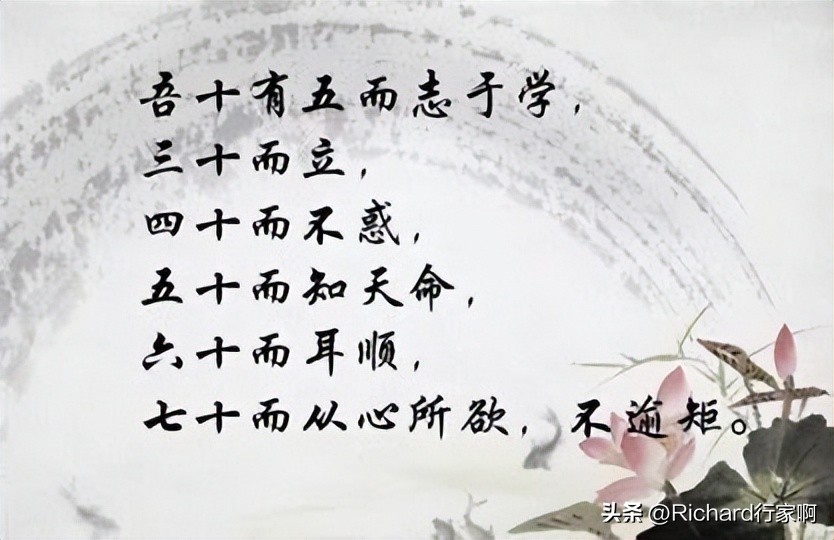 吾十有五而志于学，
三十而立，
四十而不惑，
五十而知天命，
六十而耳顺，
七十而从心所欲，不逾矩。
头条 @Richard行家啊